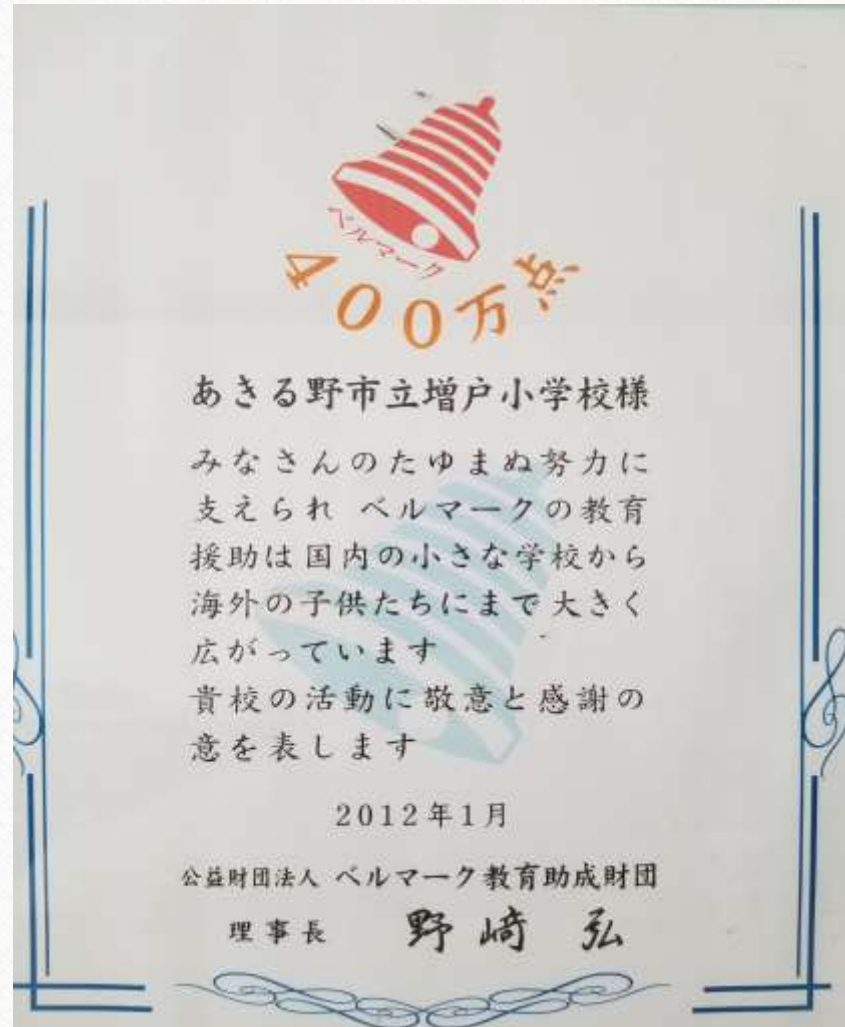 ベルマーク
400万点
あきる野市立増戸小学校様
みなさんのたゆまぬ努力に
支えられ ベルマークの教育
援助は国内の小さな学校から
海外の子供たちにまで大きく
広がっています
貴校の活動に敬意と感謝の
意を表します
2012年1月
公益財団法人 ベルマーク教育助成財団
理事長 野﨑 弘